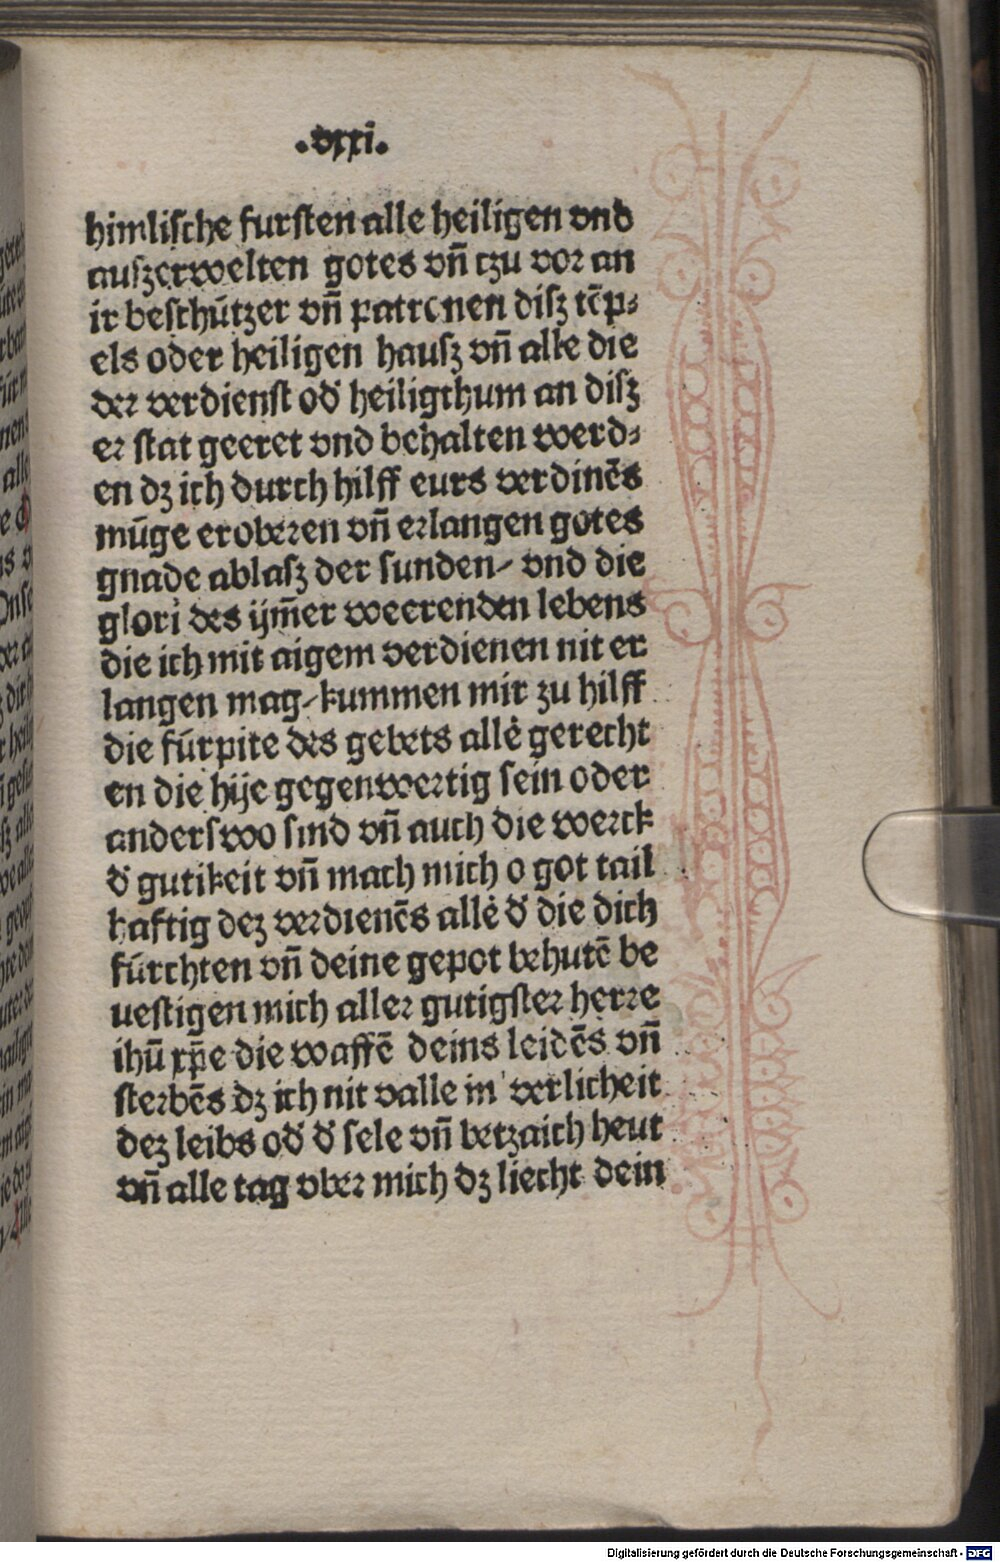 .vxxi.
himlische fursten alle heiligen vnd
auſzerwelten gotes vn̄ tzu vor an
ir beschützer vn̄ patronen diſz tēp⸗
els oder heiligen hauſz vn̄ alle die
der verdienst od̛ heiligthum an diſz
er stat geeret vnd behalten werd⸗
en dz ich durch hilff eurs verdinēs
müge eroberen vn̄ erlangen gotes
gnade ablaſz der sunden / vnd die
glori des ijm̄er weerenden lebens
die ich mit aigem verdienen nit er
langen mag / kummen mir zu hilff
die fürpite des gebets allė gerecht
en die hije gegenwertig sein oder
anderſwo sind vn̄ auch die werck
d̛ gutikeit vn̄ mach mich o got tail
haftig dez verdienēs allė d̛ die dich
fürchten vn̄ deine gepot behutē be
uestigen mich aller gutigster herre
ihū xp̄e die waffē deins leidēs vn̄
sterbēs dz ich nit valle in verlicheit
dez leibs od̛ d̛ sele vn̄ betzaich heut
vn̄ alle tag vber mich dz liecht dein
Digitalisierung gefördert durch die Deutsche Forschungsgemeinschaft - DFG